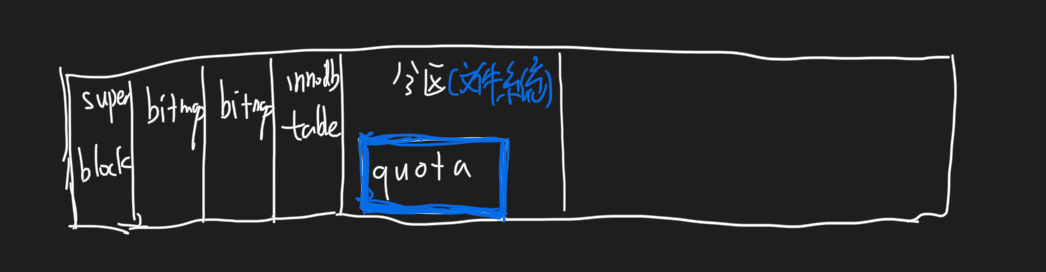 super
block
bitmap
bitmap
innodb
table
分区(文件系统)
quota